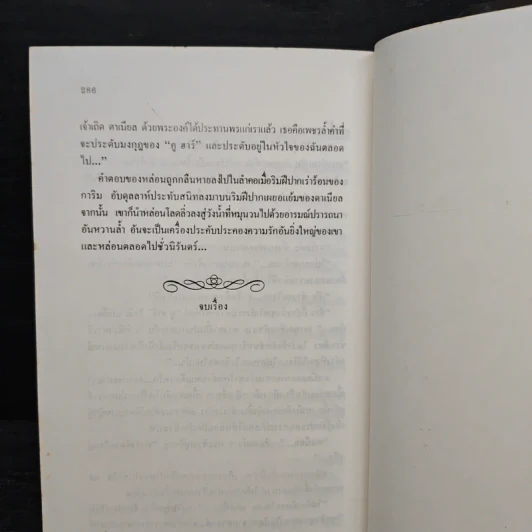 286
เจ้าเถิด ดาเนียล ด้วยพระองค์ได้ประทานพรแก่เราแล้ว เธอคือเพชรล้ำค่าที่
จะประดับมงกุฎของ “คู ฮาร์” และประดับอยู่ในหัวใจของฉันตลอด
ไป...”
คำตอบของหล่อนถูกกลืนหายลงไปในลำคอเมื่อริมฝีปากเร่าร้อนของ
การิม อับดุลลาห์ประทับสนิทลงมาบนริมฝีปากเผยอแย้มของดาเนียล
จากนั้น เขาก็นำหล่อนโลดลิ่วลงสู่วังน้ำที่หมุนวนไปด้วยอารมณ์ปรารถนา
อันหวานล้ำ อันจะเป็นเครื่องประคับประคองความรักอันยิ่งใหญ่ของเขา
และหล่อนตลอดไปชั่วนิรันดร์...
จบเรื่อง